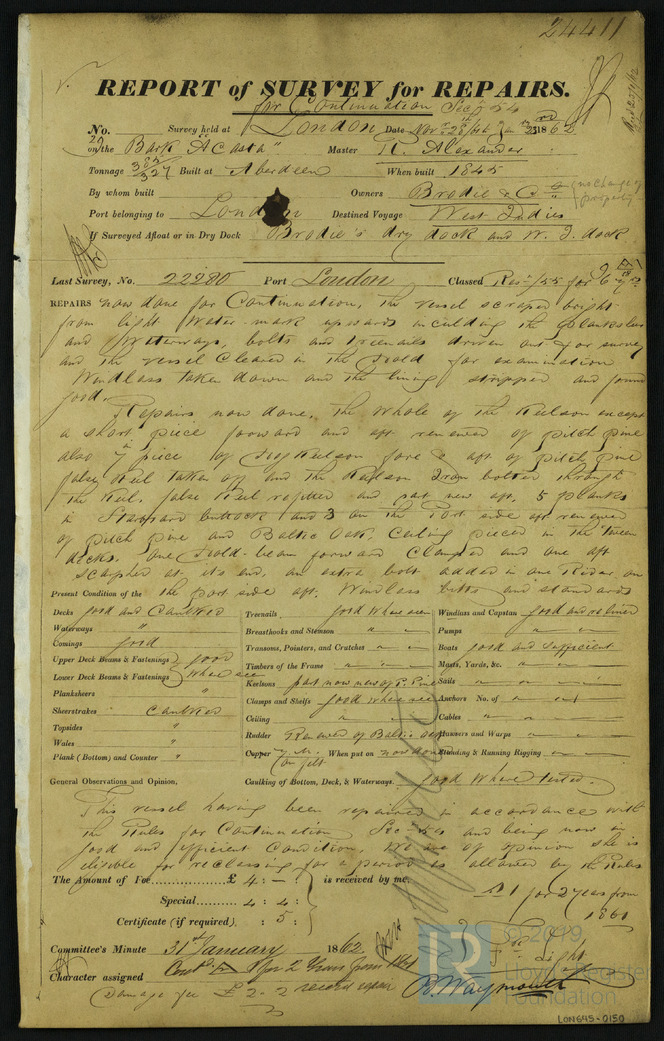 24411
REPORT of SURVEY for REPAIRS.
for Continuation Sec 54
No. Survey held at London Date Nov 28th 1861 Jan 23rd 1862
on the Bark "Acasta" Master R. Alexander
Tonnage 385/327 Built at Aberdeen When built 1845
By whom built Owners Brodie & Co no change of property
Port belonging to London Destined Voyage West Indies
If Surveyed Afloat or in Dry Dock Brodie's dry dock and W. I. dock
Last Survey, No. 22280 Port London Classed 55 for 6 yrs
REPAIRS now done for Continuation, the vessel scraped bright
from light water mark upwards including the Planksheers
and Waterways, bolts and treenails driven out for survey
and the vessel cleared in the Hold for examination
Windlass taken down and the lining stripped and found
good.
Repairs now done, the whole of the Keelson except
a short piece forward and aft renewed of pitch pine
also piece of Keelson fore & aft of pitch pine
false Keel taken off and the Keelson Iron bolted through
the Keel, false Keel refitted and part new aft, 5 planks
in Starboard buttock and 3 on the Port side aft renewed
of pitch pine and Baltic Oak, Ceiling pieced in the tween
decks. One Hold-beam forward clamped and one aft
scarphed at its end, an extra bolt added in one Rider on
the port side aft. Windlass bitts and standards
Present Condition of the
Decks good and Caulked
Waterways "
Comings good
Upper Deck Beams & Fastenings good
Lower Deck Beams & Fastenings where seen
Planksheers "
Sheerstrakes caulked
Topsides "
Wales "
Plank (Bottom) and Counter "
Treenails good where seen
Breasthooks and Stemson "
Transoms, Pointers, and Crutches "
Timbers of the Frame "
Keelsons part now new of P. Pine
Clamps and Shelfs good where seen
Ceiling "
Rudder Renewed of Baltic oak
Copper Y. M. on felt When put on now done
Windlass and Capstan good and relined
Pumps "
Boats good and sufficient
Masts, Yards, &c. "
Sails "
Anchors No. of
Cables "
Hawsers and Warps "
Standing & Running Rigging
General Observations and Opinion.
Caulking of Bottom, Deck, & Waterways. good where tested.
This vessel having been repaired in accordance with
the Rules for Continuation Sec 54 and being now in
good and efficient Condition, We are of opinion she is
eligible for reclassing for a period as allowed by the Rules
The Amount of Fee £ 4 : — : is received by me,
A 1 for 2 years from
Special 4 : 4 :
1861
Certificate (if required) : 5 :
Committee's Minute 31st January 1862
Fr. Light
Character assigned Contd A 1 for 2 Years from 1861
B. Waymouth
Damage fee £ 2-2 record repair
© 2019
Lloyd's Register
Foundation
LON645-0150